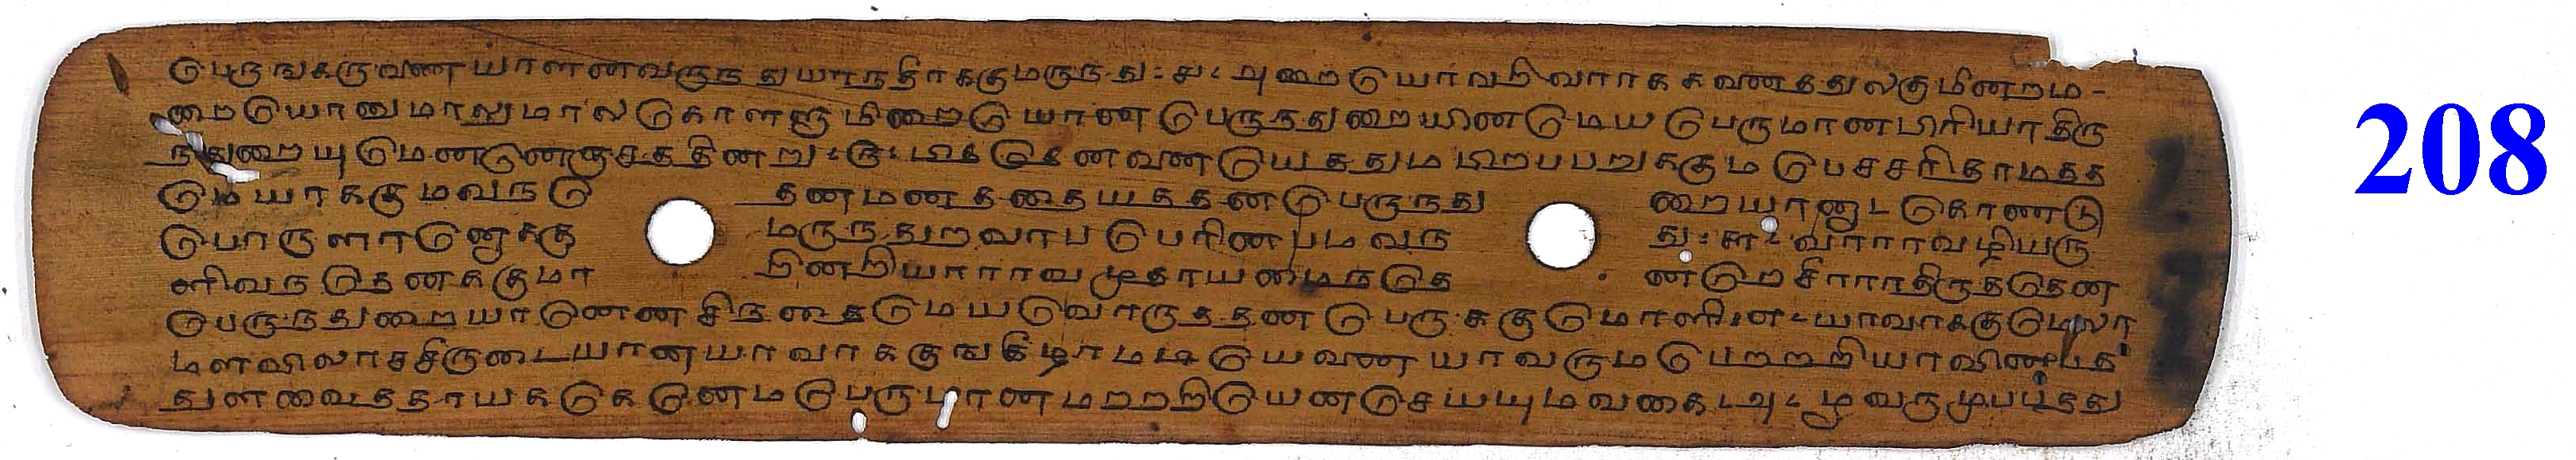 பெருஙகருணையாளனவருநதுயாநதீாககுமருநது: ச: அறையொவறிவாாககனைததுலகுமீனறம-
றையொனுமாலுமாலகொளளுமிறையொனபெருநதுறையினமெயபெருமானபிரியாதிரு
நதுறையுமெனனெஞசததினறு: ரு: பிததெனனையெததுமபிறபபறுககுமபெசசரிதாமதத
மெயாககுமவநதெனமனததையததனபெருநதுறையானாடகொணடு
பொருளாலெனொககுமருநதுறவாபபெரினபமவநது: சா: வாராவழியரு
ளிவநதெனககுமாறினறியாராவமுதாயமைநதெனறெசீராாதிருததென
பெருநதுறையானெனசிநதைமெயவொருததனபெருககுமொளி: எ: யாவாககுமெலா
மளவிலாசசீருடையானயாவாககுஙகீழாமடியெனையாவருமபெறறறியாவினபத
துளவைததாயககெகெனமபெருமானமறறறியெனசெயயுமவகை: அ: மூவருமுபபதது